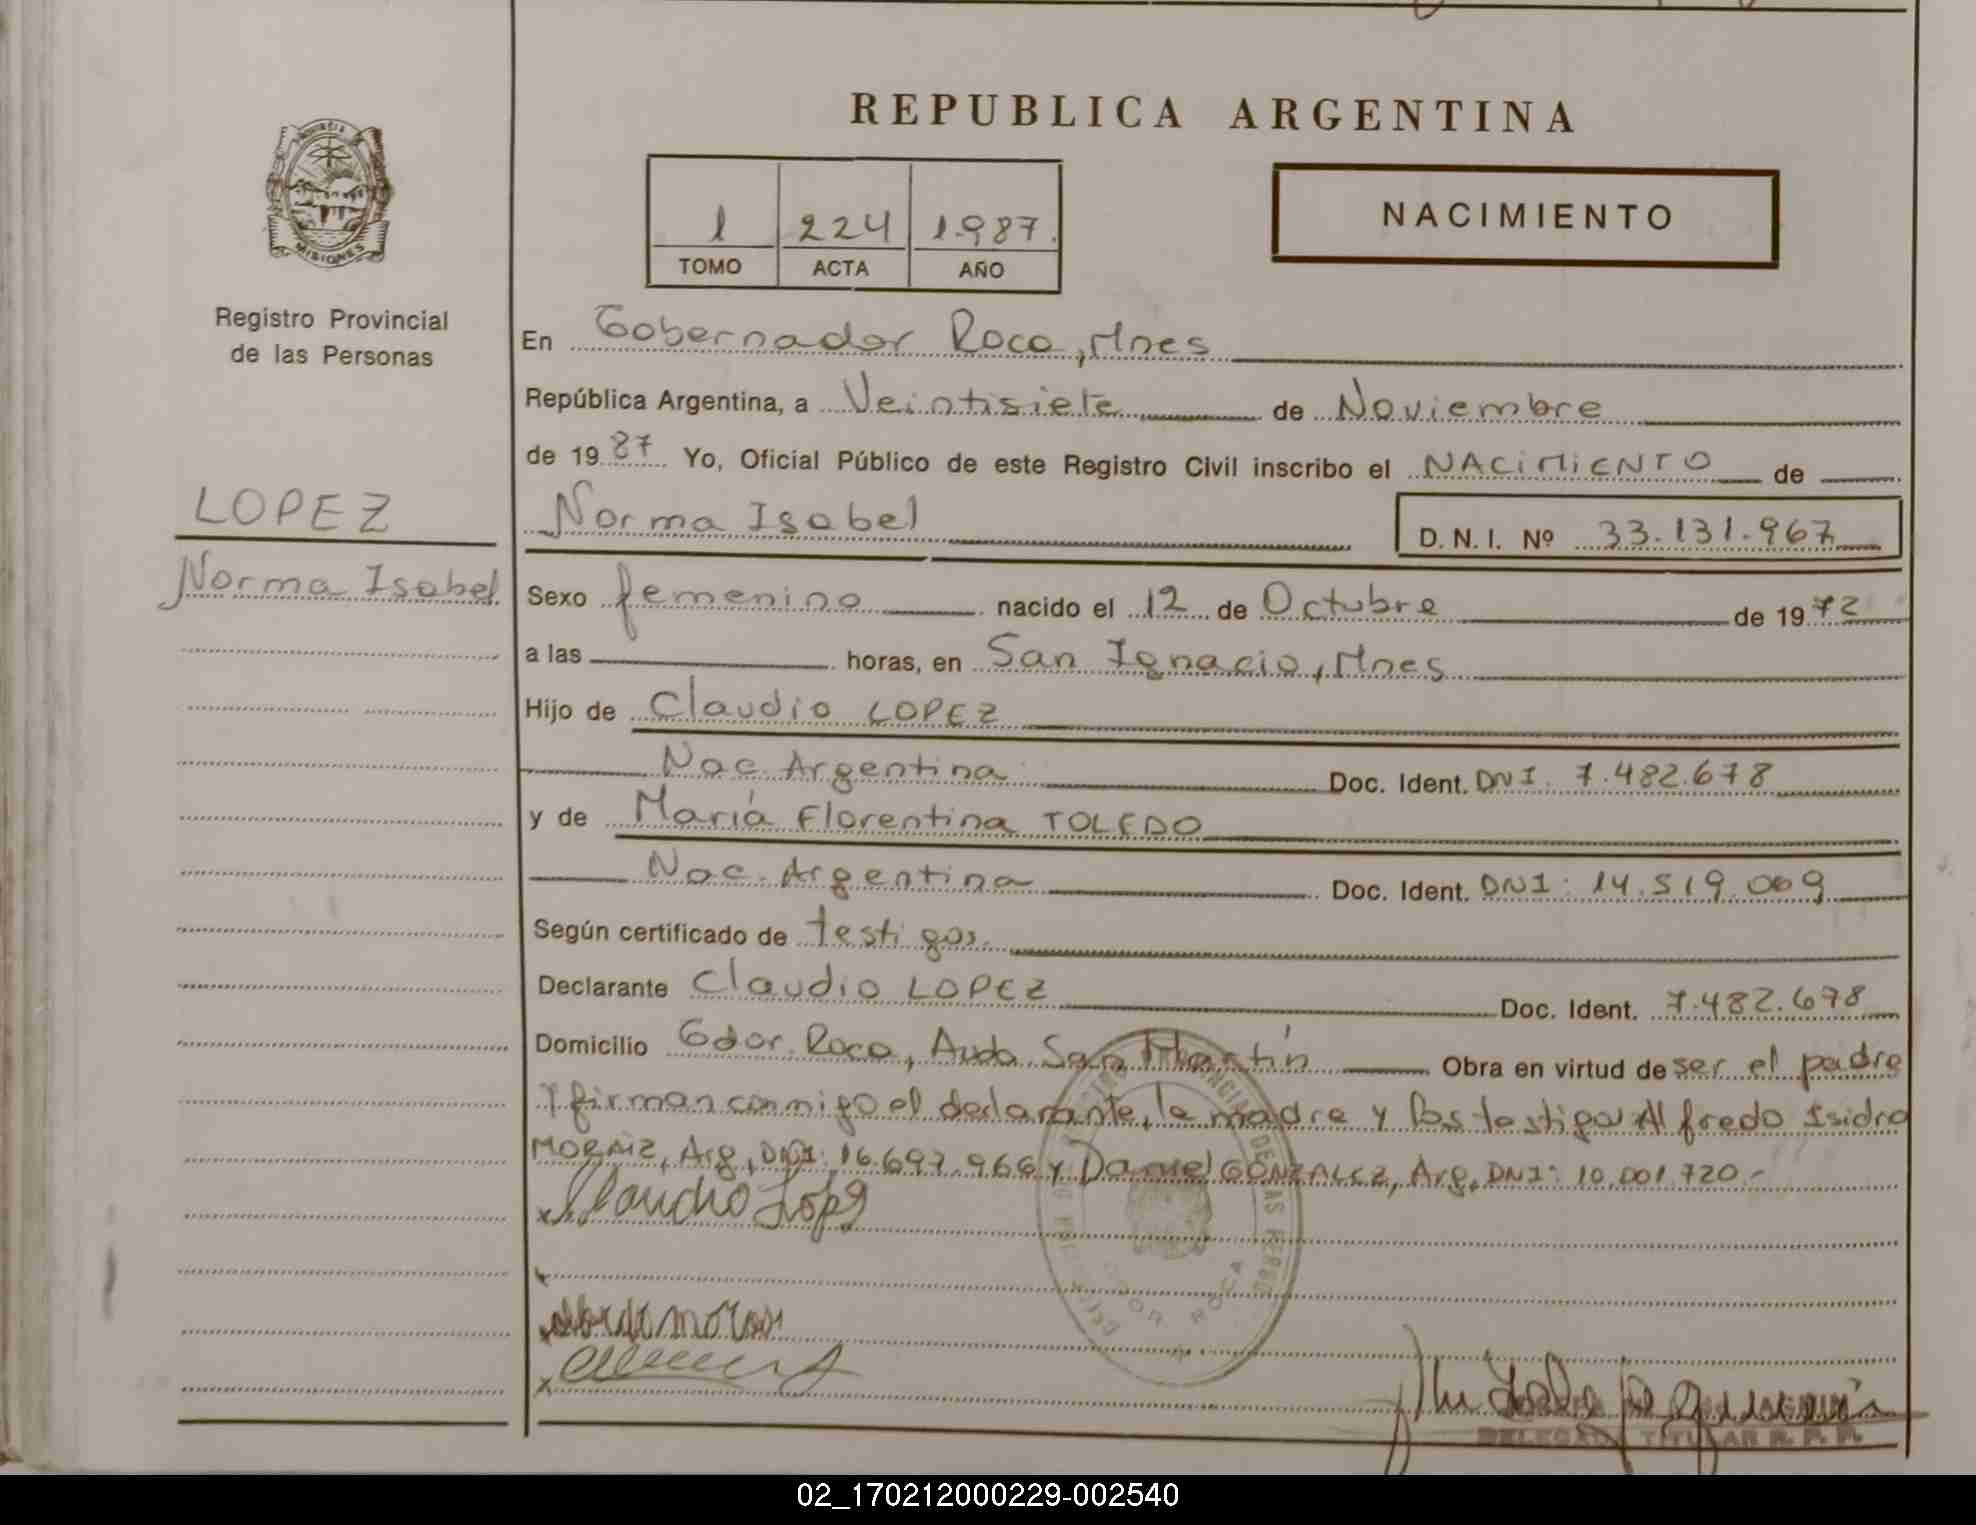 REPUBLICA ARGENTINA
PROVINCIA
MISIONES
1 224 1987
TOMO ACTA AÑO
NACIMIENTO
Registro Provincial
de las Personas
LOPEZ
Norma Isabel
En Gobernador Roca, Mnes
República Argentina, a Veintisiete de Noviembre
de 1987 Yo, Oficial Público de este Registro Civil inscribo el NACIMIENTO de
Norma Isabel D. N. I. Nº 33.131.967
Sexo femenino nacido el 12 de Octubre de 1972
a las horas, en San Ignacio, Mnes
Hijo de Claudio LOPEZ
Nac. Argentina Doc. Ident. DNI. 7.482.678
y de María Florentina TOLEDO
Nac. Argentina Doc. Ident. DNI: 14.519.069
Según certificado de testigos.
Declarante Claudio LOPEZ Doc. Ident. 7.482.678
Domicilio Gdor. Roca, Avda San Martín Obra en virtud de ser el padre
Y firman conmigo el declarante, la madre y los testigos Alfredo Isidro
MORAIZ, Arg, DNI: 16.697.966 y Daniel GONZALEZ, Arg, DNI: 10.001.720.-
Claudio Lopz
GDOR ROCA
DELEGADA TITULAR R. P. P.
02_170212000229-002540